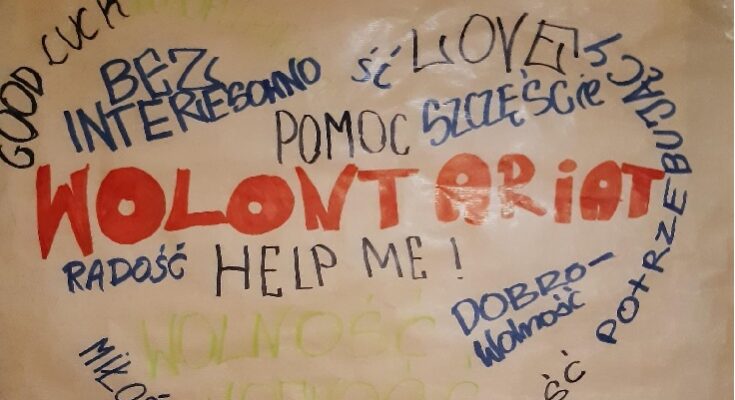 GOOD LUCK
BEZ
INTERESOWNO
ŚĆ
LOVE
POMOC
SZCZĘŚCIE
POTRZEBUJĄCY
WOLONTARIAT
RADOŚĆ
HELP ME!
DOBRO-
Wolność
WOLNOŚĆ
ŚĆ